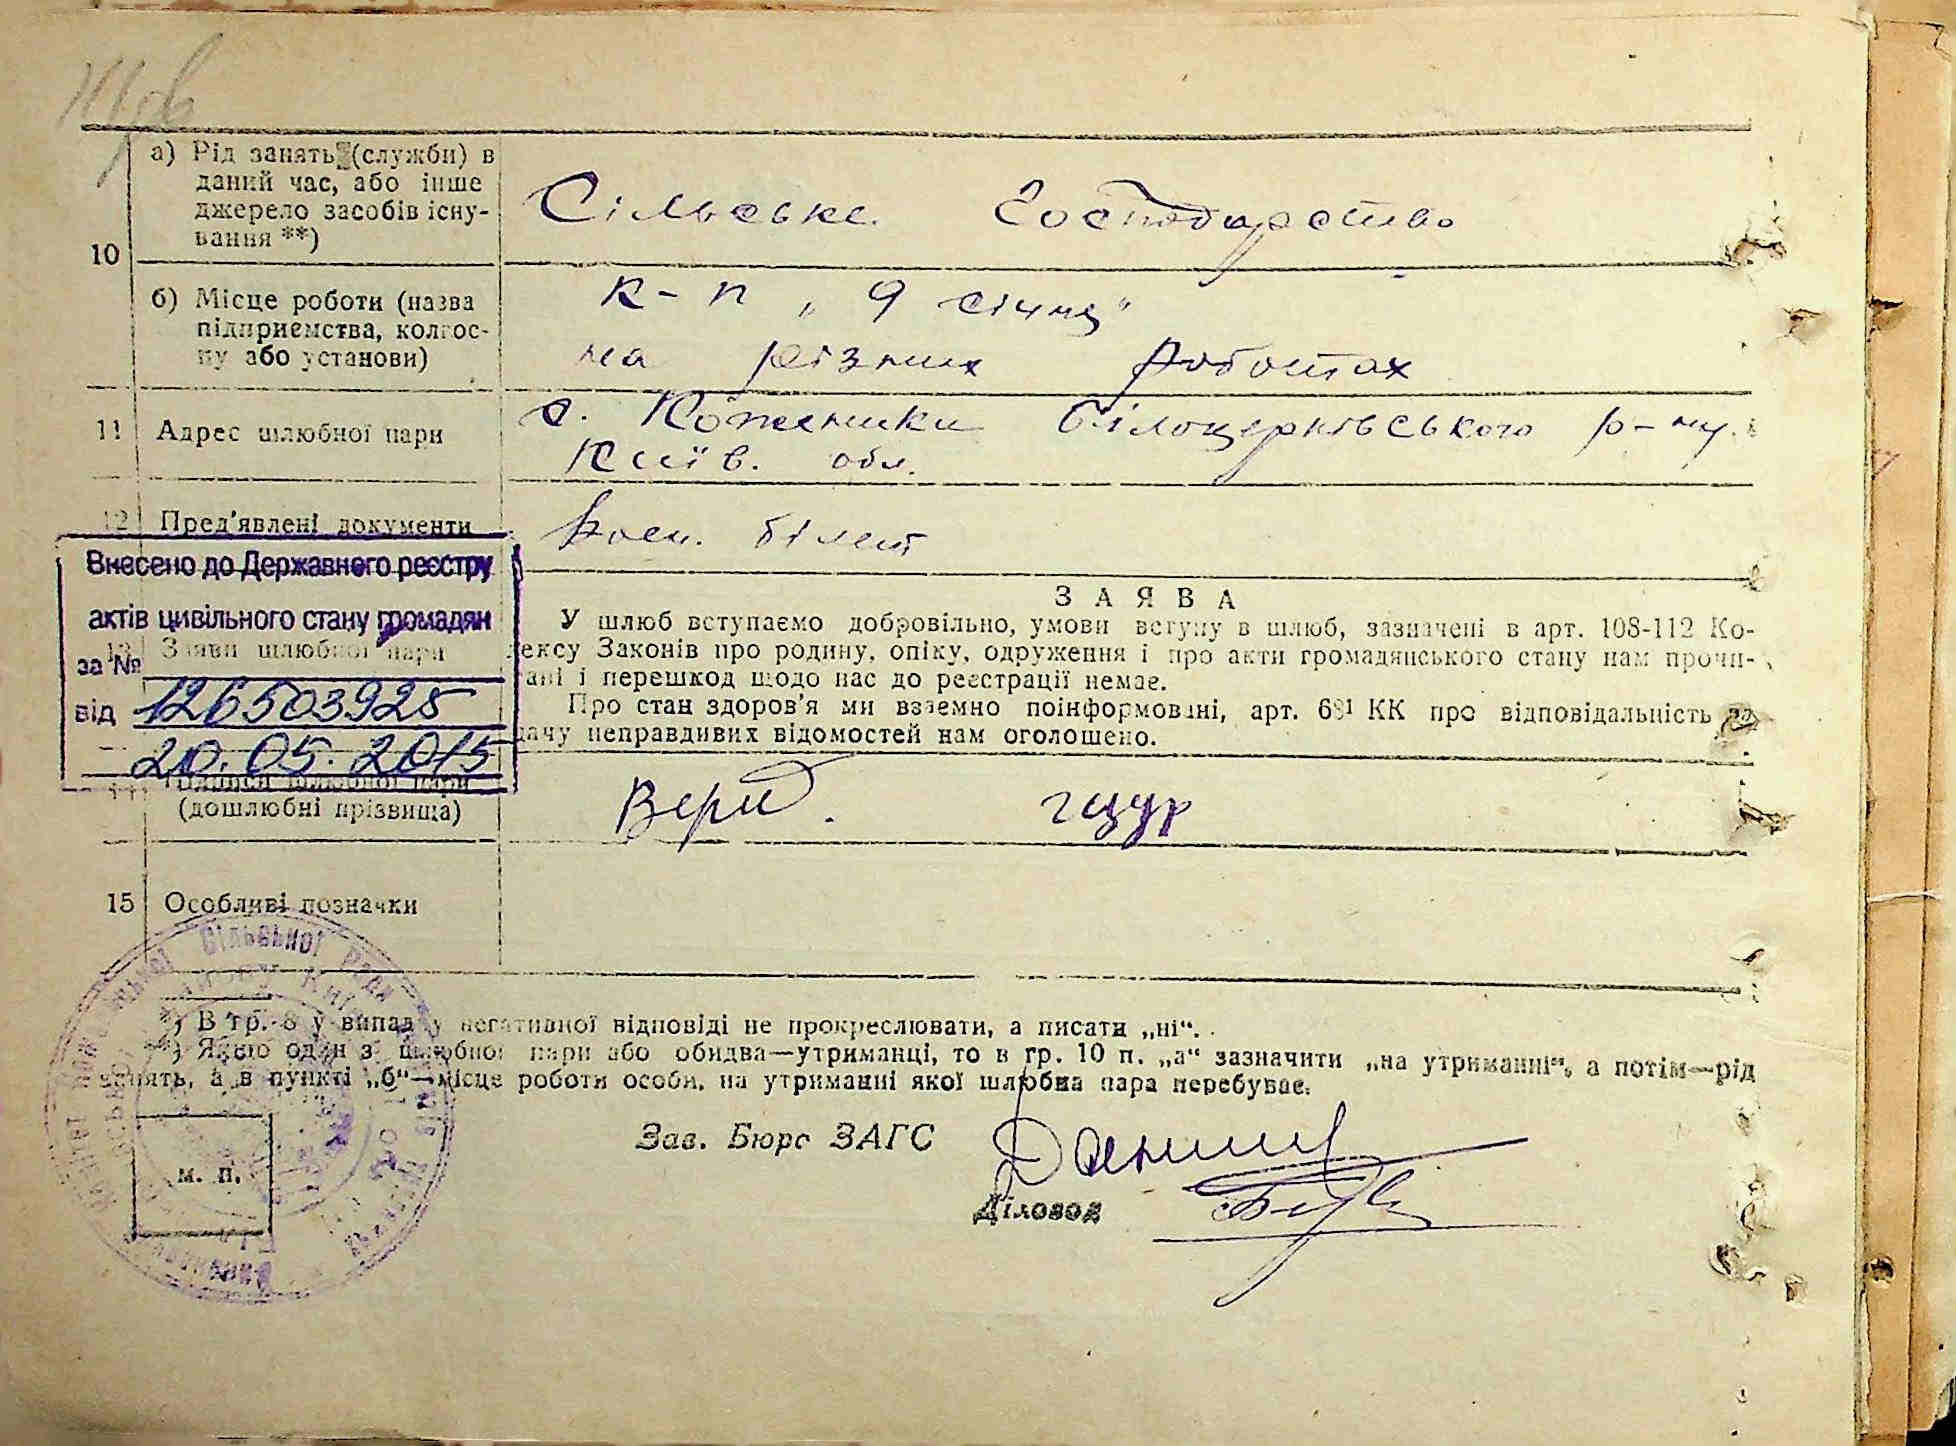 а) Рід занять (служби) в
даний час, або інше
джерело засобів існу-
вання **)
Сільське Господарство
10
б) Місце роботи (назва
підприємства, колгос-
пу або установи)
к-п „9 січня"
на різних роботах
11 Адрес шлюбної пари
с. Коженики Білоцерківського р-ну.
Київ. обл.
12 Пред'явлені документи
Воен. білет
Внесено до Державного реєстру
актів цивільного стану громадян
за №
від 126503925
20.05.2015
13 Заяви шлюбної пари
ЗАЯВА
У шлюб вступаємо добровільно, умови вступу в шлюб, зазначені в арт. 108-112 Ко-
дексу Законів про родину, опіку, одруження і про акти громадянського стану нам прочи-
тані і перешкод щодо нас до реєстрації немає.
Про стан здоров'я ми взаємно поінформовані, арт. 68¹ КК про відповідальність за
дачу неправдивих відомостей нам оголошено.
14 Підписи шлюбної пари
(дошлюбні прізвища)
гщур
15 Особливі позначки
*) В гр. 8 у випадку негативної відповіді не прокреслювати, а писати „ні".
**) Якщо один з шлюбної пари або обидва—утриманці, то в гр. 10 п. „а" зазначити „на утриманні", а потім—рід
занять, а в пункті „б"—місце роботи особи, на утриманні якої шлюбна пара перебуває.
Зав. Бюро ЗАГС
м. п.
Діловод
сільської ради